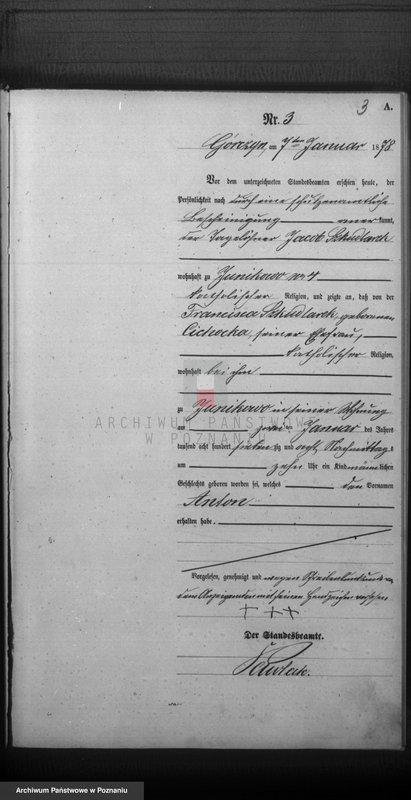 3 A.
Nr. 3
Górczyn, am 7ten Januar 1878
Vor dem unterzeichneten Standesbeamten erschien heute, der
Persönlichkeit nach durch eine schulzenamtliche
Bescheinigung anerkannt,
der Tagelöhner Jacob Szkudlarek
wohnhaft zu Junikowo Nr 4
katholischer Religion, und zeigte an, daß von der
Francisca Szkudlarek, geborenen
Cichocka, seiner Ehefrau,
katholischer Religion,
wohnhaft bei ihm
zu Junikowo in seiner Wohnung
am zwei ten Januar des Jahres
tausend acht hundert siebenzig und acht Nachmittags
um zehn Uhr ein Kind männlichen
Geschlechts geboren worden sei, welches den Vornamen
Anton
erhalten habe.
Vorgelesen, genehmigt und wegen Schreibensunkunde
dem Anzeigenden mit seinem Handzeichen versehen
+ + +
Der Standesbeamte.
ARCHIWUM PAŃSTWOWE
W POZNANIU
Archiwum Państwowe w Poznaniu